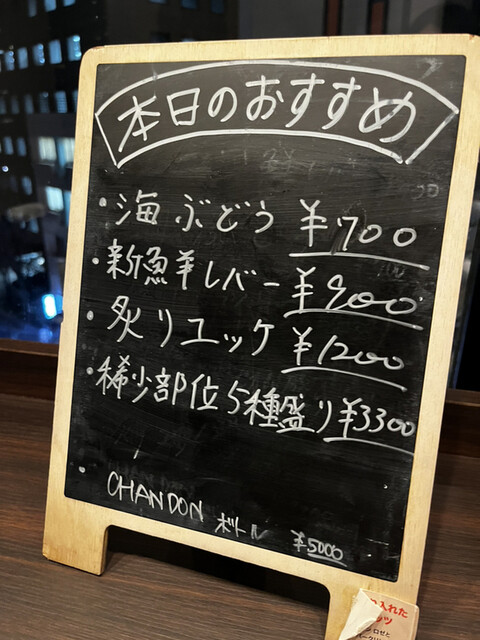 本日のおすすめ
・海ぶどう ¥700
・新鮮レバー ¥900
・炙りユッケ ¥1200
・稀少部位5種盛り ¥3300
・CHANDON ボトル ¥5000
入れた